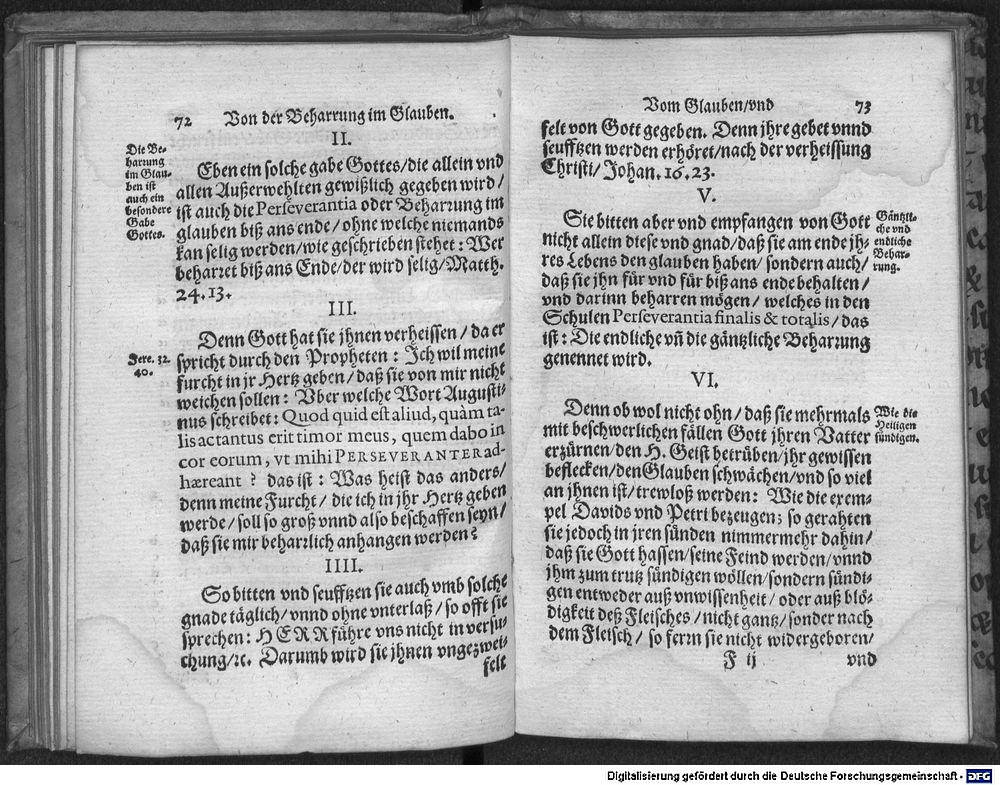 72 Von der Beharrung im Glauben.
II.
Die Be-
harrung
im Glau-
ben ist
auch ein
besondere
Gabe
Gottes.
Eben ein solche gabe Gottes/die allein vnd
allen Außerwehlten gewißlich gegeben wird/
ist auch die Perseverantia oder Beharrung im
glauben biß ans ende/ohne welche niemands
kan selig werden/wie geschrieben stehet: Wer
beharret biß ans Ende/der wird selig/Matth.
24.13.
III.
Jere. 32.
40.
Denn Gott hat sie jhnen verheissen/da er
spricht durch den Propheten: Ich wil meine
furcht in jr Hertz geben/daß sie von mir nicht
weichen sollen: Vber welche Wort Augusti-
nus schreibet: Quod quid est aliud, quàm ta-
lis ac tantus erit timor meus, quem dabo in
cor eorum, vt mihi PERSEVERANTER ad-
hæreant? das ist: Was heist das anders/
denn meine Furcht/die ich in jhr Hertz geben
werde/soll so groß vnnd also beschaffen seyn/
daß sie mir beharrlich anhangen werden?
IIII.
So bitten vnd seufftzen sie auch vmb solche
gnade täglich/vnnd ohne vnterlaß/so offt sie
sprechen: HERR führe vns nicht in versu-
chung/ꝛc. Darumb wird sie jhnen vngezwei-
felt
Vom Glauben/vnd 73
felt von Gott gegeben. Denn jhre gebet vnnd
seufftzen werden erhöret/nach der verheissung
Christi/Johan.16.23.
V.
Gäntzli-
che vnd
endliche
Behar-
rung.
Sie bitten aber vnd empfangen von Gott
nicht allein diese vnd gnad/daß sie am ende jh-
res Lebens den glauben haben/sondern auch/
daß sie jhn für vnd für biß ans ende behalten/
vnd darinn beharren mögen/welches in den
Schulen Perseverantia finalis & totalis/das
ist: Die endliche vñ die gäntzliche Beharrung
genennet wird.
VI.
Wie die
Heiligen
sündigen.
Denn ob wol nicht ohn/daß sie mehrmals
mit beschwerlichen fällen Gott jhren Vatter
erzürnen/den H. Geist betrüben/jhr gewissen
beflecken/den Glauben schwächen/vnd so viel
an jhnen ist/trewloß werden: Wie die exem-
pel Davids vnd Petri bezeugen; so gerahten
sie jedoch in jren sünden nimmermehr dahin/
daß sie Gott hassen/seine Feind werden/vnnd
jhm zum trutz sündigen wöllen/sondern sündi-
gen entweder auß vnwissenheit/oder auß blö-
digkeit deß Fleisches/nicht gantz/sonder nach
dem Fleisch/so ferrn sie nicht widergeboren/
F ij vnd
Digitalisierung gefördert durch die Deutsche Forschungsgemeinschaft - DFG